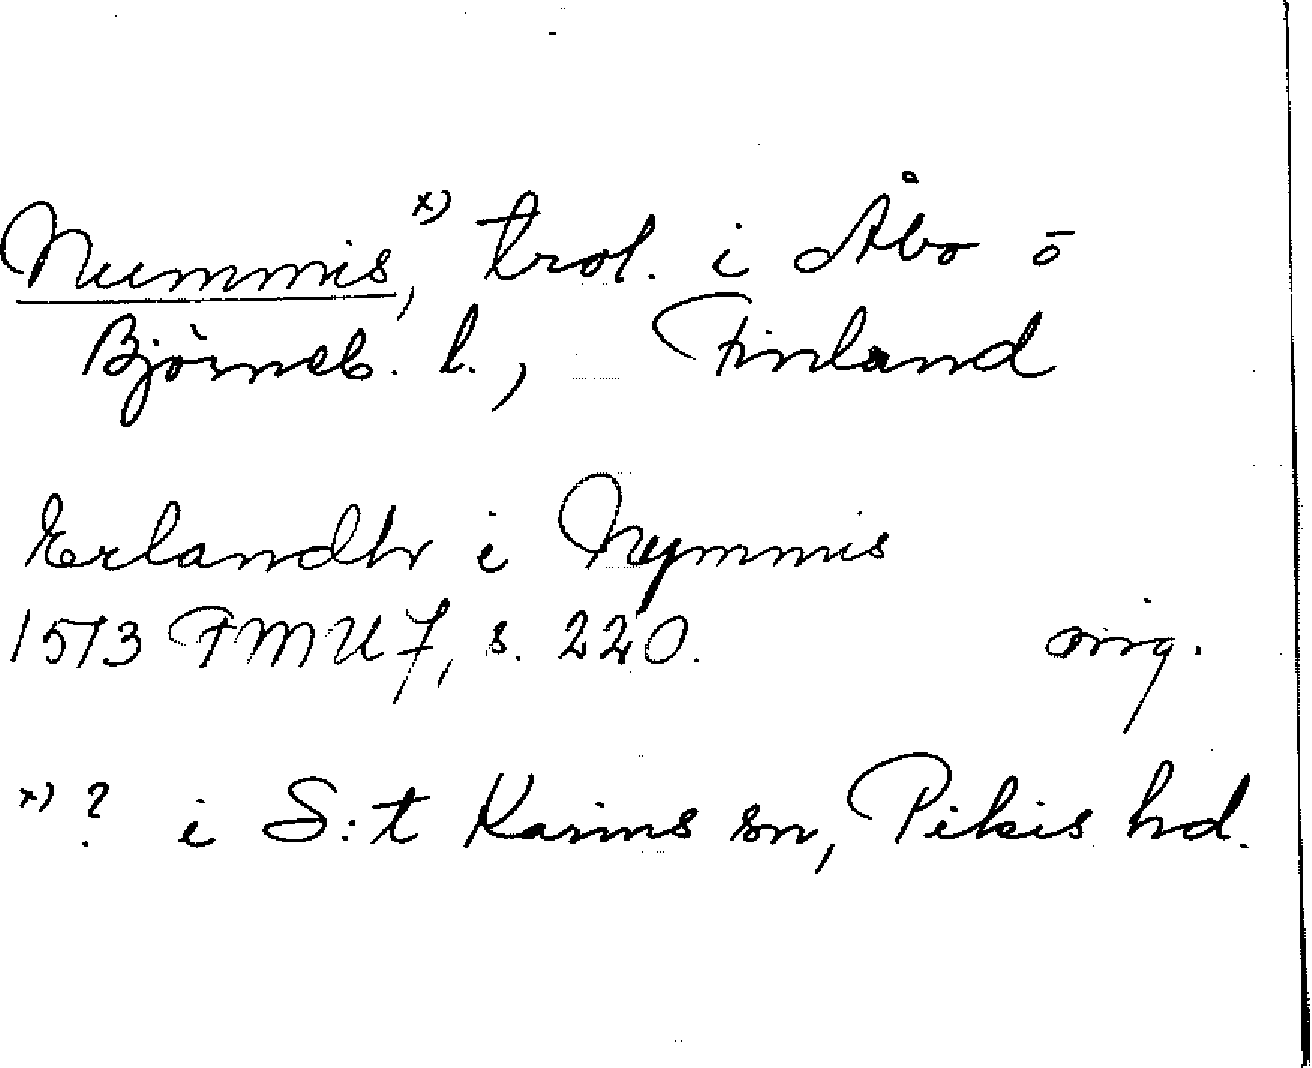 Nummis,x) trol. i Åbo o
Björneb. l., Finland
Erlandhr i Nymmis
1513 FMU 7, s. 220. orig.
x) ? i S:t Karins sn, Pikis hd.